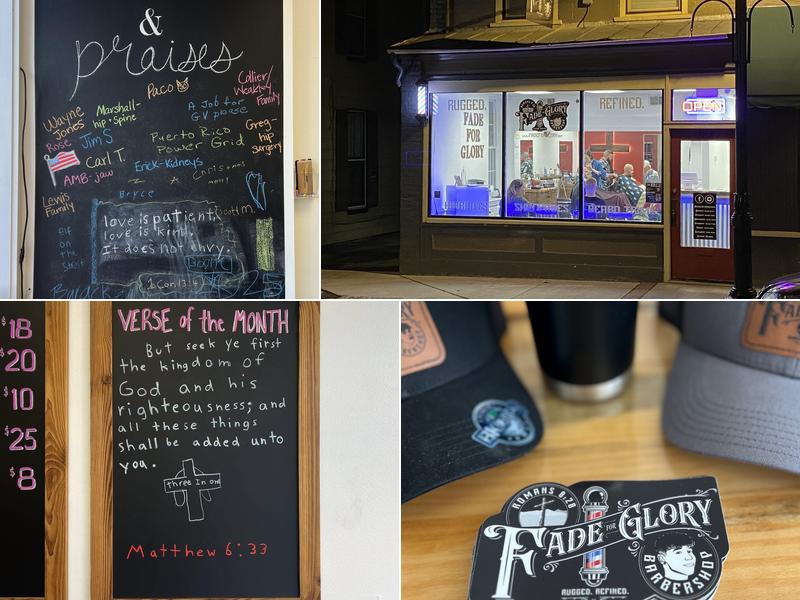 &
praises
Paco
Collier/
Weakley
Family
Wayne
Jones
Marshall-
hip + Spine
A Job for
GV please
Rose
Jim S
Puerto Rico
Power Grid
Greg-
hip
surgery
Carl T.
Erick-Kidneys
AMB-jaw
Bryce
Lewis
Family
Elf
on
the
love is patient,
love is kind.
It does not envy.
1 Cor. 13:4
RUGGED.
FADE
FOR
GLORY
FADE FOR GLORY
REFINED.
OPEN
$18
$20
$10
$25
$8
VERSE of the MONTH
But seek ye first
the kingdom of
God and his
righteousness; and
all these things
shall be added unto
you.
three In one
Matthew 6:33
ROMANS 8:28
FADE FOR GLORY
BARBERSHOP
RUGGED. REFINED.